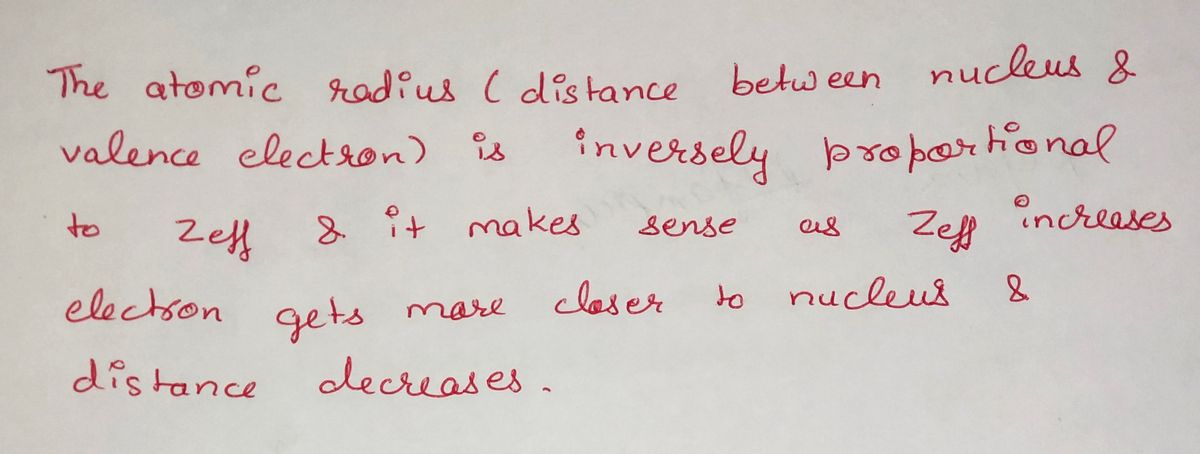 The atomic radius ( distance between nucleus &
valence electron) is inversely proportional
to Zeff & it makes sense as Zeff increases
electron gets more closer to nucleus &
distance decreases.